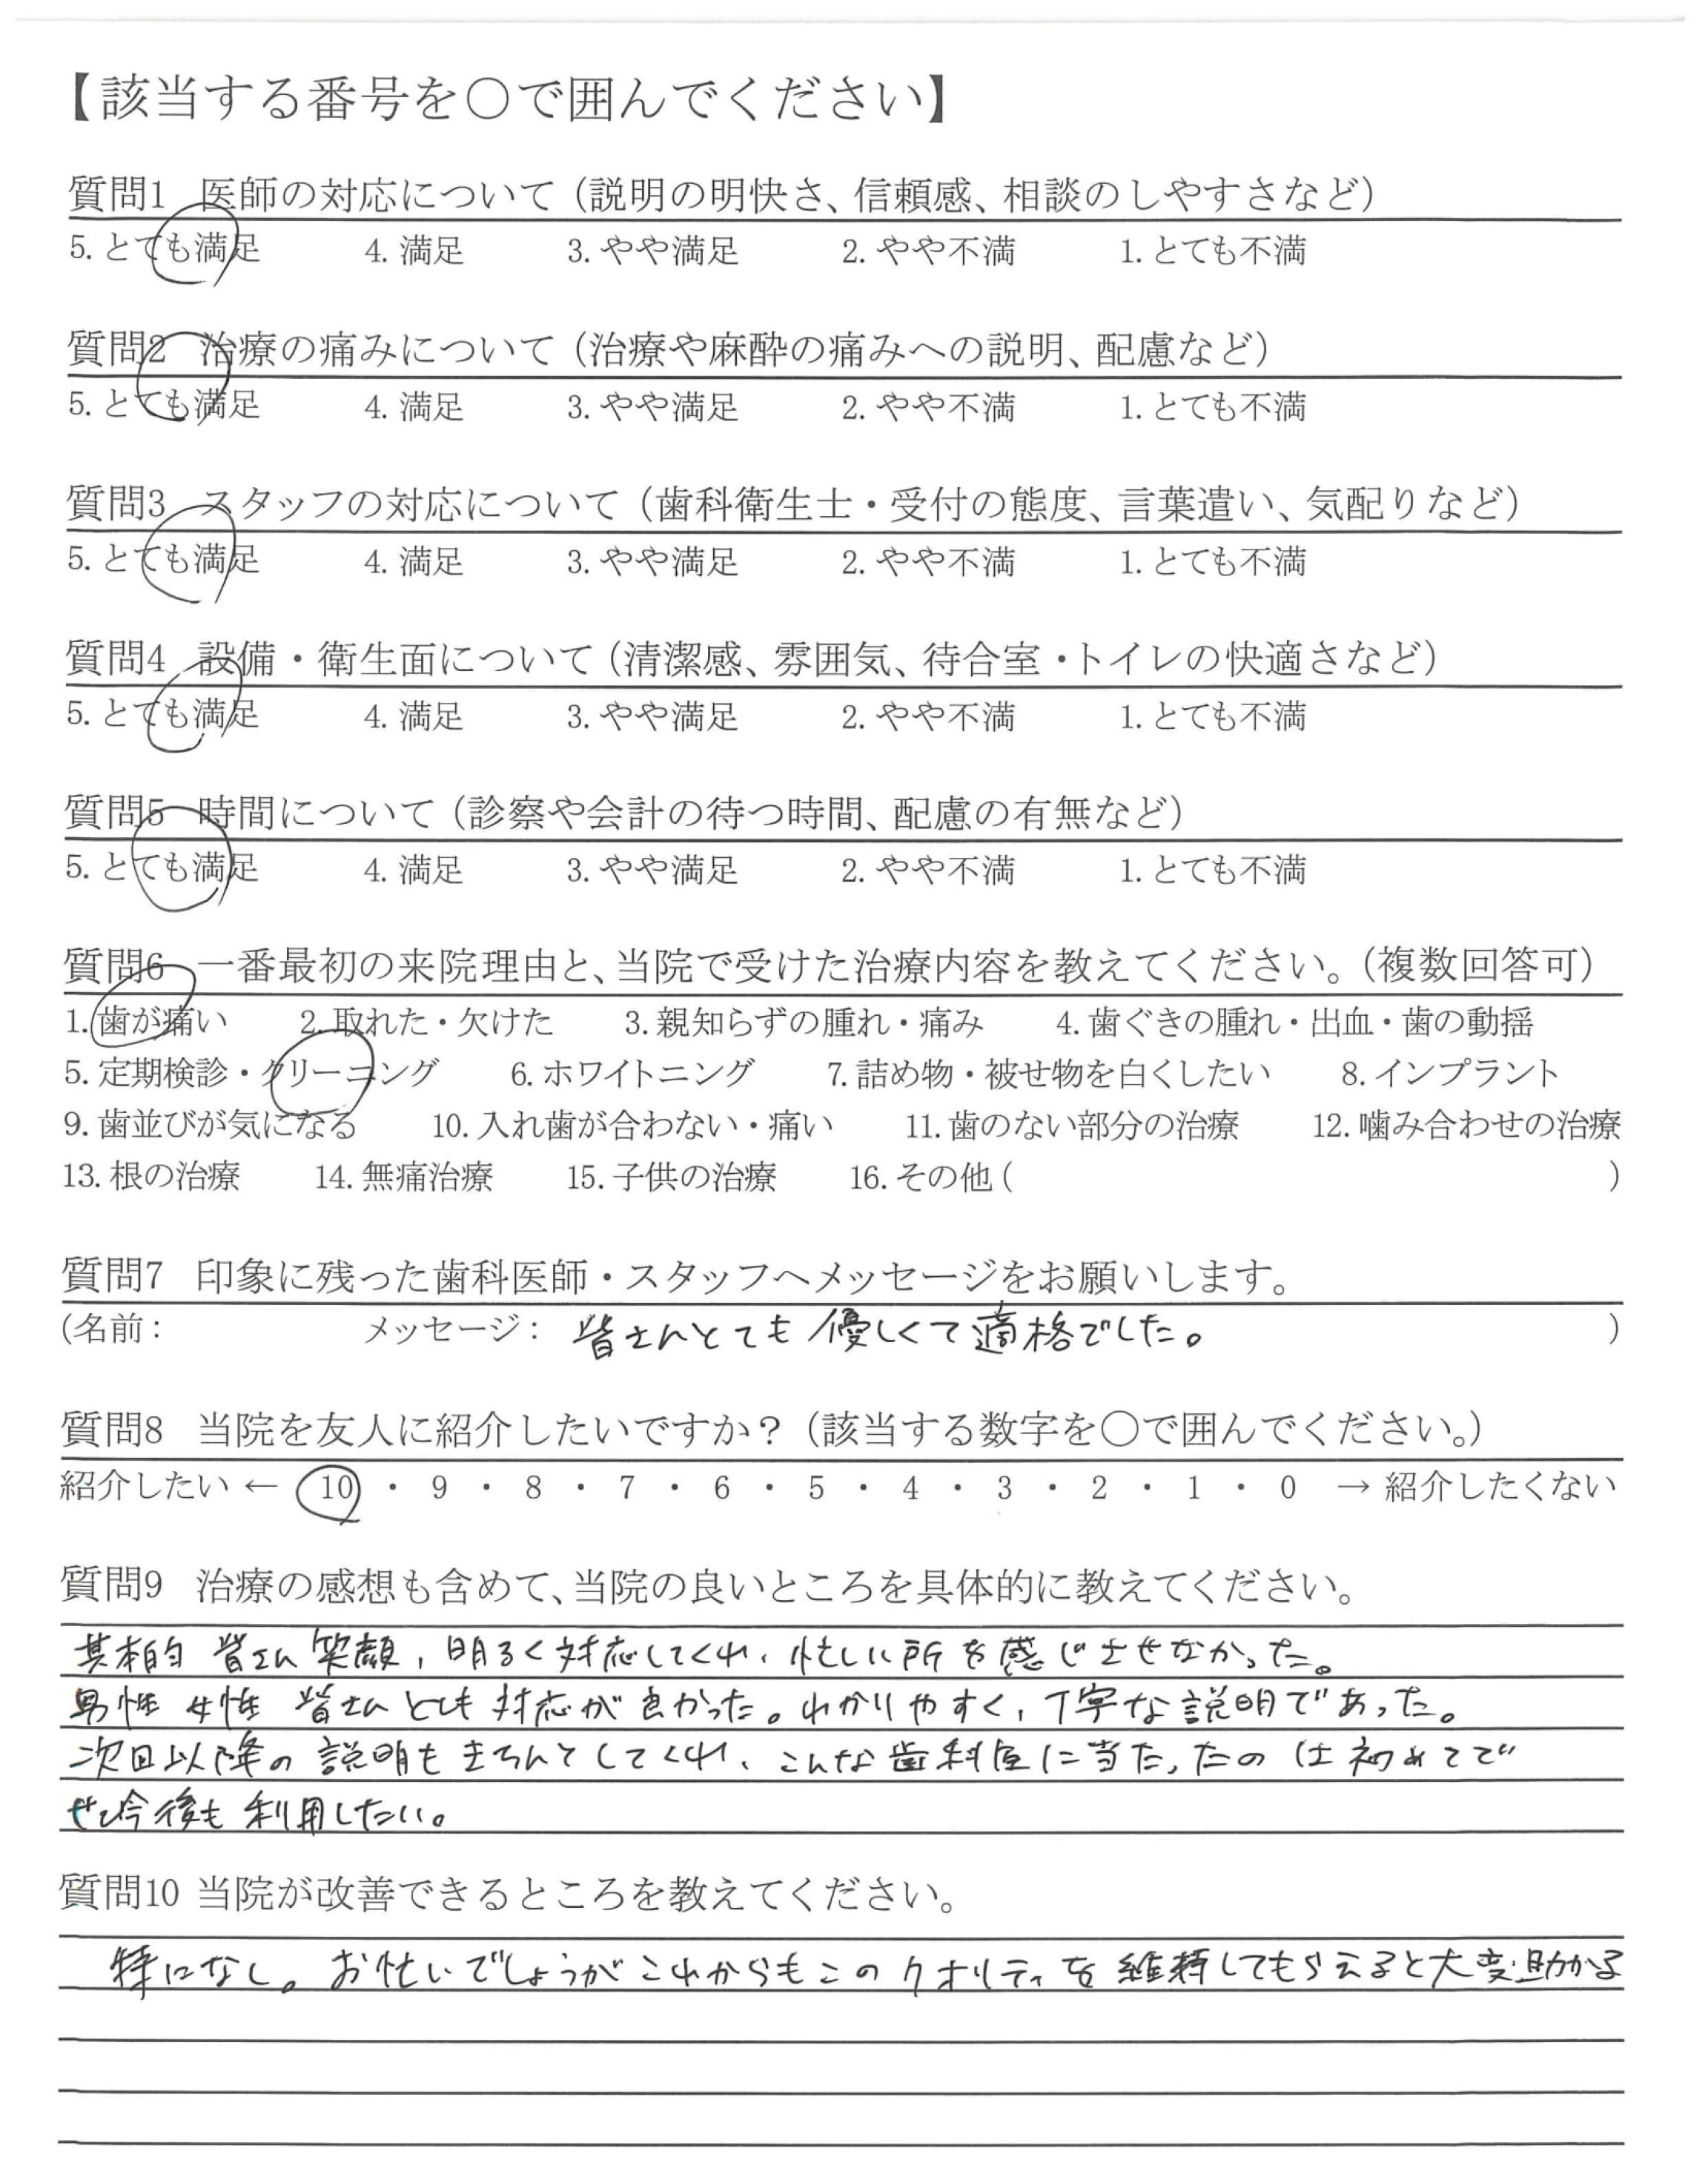 【該当する番号を〇で囲んでください】
質問1 医師の対応について（説明の明快さ、信頼感、相談のしやすさなど）
5. とても満足 4. 満足 3. やや満足 2. やや不満 1. とても不満
質問2 治療の痛みについて（治療や麻酔の痛みへの説明、配慮など）
5. とても満足 4. 満足 3. やや満足 2. やや不満 1. とても不満
質問3 スタッフの対応について（歯科衛生士・受付の態度、言葉遣い、気配りなど）
5. とても満足 4. 満足 3. やや満足 2. やや不満 1. とても不満
質問4 設備・衛生面について（清潔感、雰囲気、待合室・トイレの快適さなど）
5. とても満足 4. 満足 3. やや満足 2. やや不満 1. とても不満
質問5 時間について（診察や会計の待つ時間、配慮の有無など）
5. とても満足 4. 満足 3. やや満足 2. やや不満 1. とても不満
質問6 一番最初の来院理由と、当院で受けた治療内容を教えてください。（複数回答可）
1. 歯が痛い 2. 取れた・欠けた 3. 親知らずの腫れ・痛み 4. 歯ぐきの腫れ・出血・歯の動揺
5. 定期検診・クリーニング 6. ホワイトニング 7. 詰め物・被せ物を白くしたい 8. インプラント
9. 歯並びが気になる 10. 入れ歯が合わない・痛い 11. 歯のない部分の治療 12. 噛み合わせの治療
13. 根の治療 14. 無痛治療 15. 子供の治療 16. その他（ ）
質問7 印象に残った歯科医師・スタッフへメッセージをお願いします。
（名前： メッセージ： 皆さんとても優しくて適格でした。 ）
質問8 当院を友人に紹介したいですか？（該当する数字を〇で囲んでください。）
紹介したい ← 10 ・ 9 ・ 8 ・ 7 ・ 6 ・ 5 ・ 4 ・ 3 ・ 2 ・ 1 ・ 0 → 紹介したくない
質問9 治療の感想も含めて、当院の良いところを具体的に教えてください。
基本的 皆さん 笑顔、明るく対応してくれ、忙しい所を感じさせなかった。
男性 女性 皆さん とても 対応が良かった。わかりやすく、丁寧な説明であった。
次回以降の説明もきちんとしてくれ、こんな歯科医に当たったのは初めてで
ぜひ今後も利用したい。
質問10 当院が改善できるところを教えてください。
特になし。お忙いでしょうがこれからもこのクオリティを維持してもらえると大変助かる